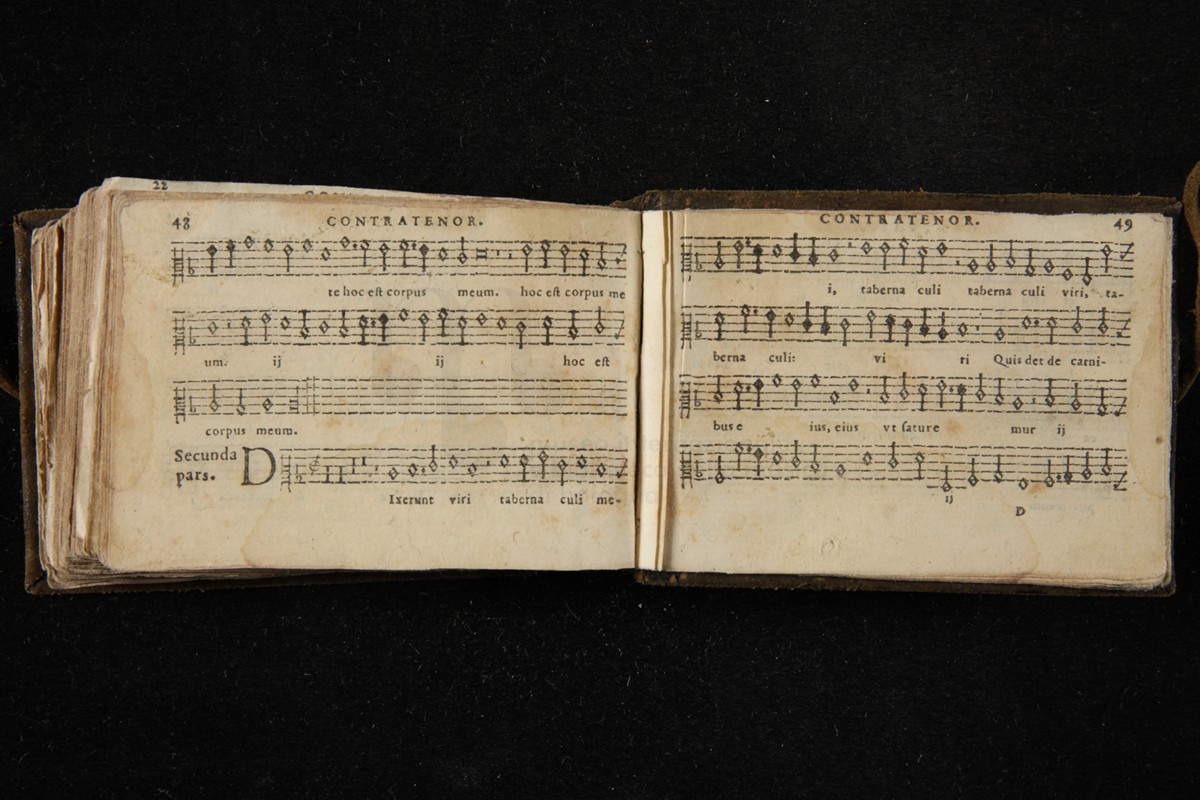 22
48 CONTRATENOR.
te hoc est corpus meum. hoc est corpus me
um. ij ij hoc est
corpus meum.
Secunda
pars.
DIxerunt viri taberna culi me-
CONTRATENOR. 49
i, taberna culi taberna culi viri, ta-
berna culi: vi ri Quis det de carni-
bus e ius, eius vt sature mur ij
ij
D